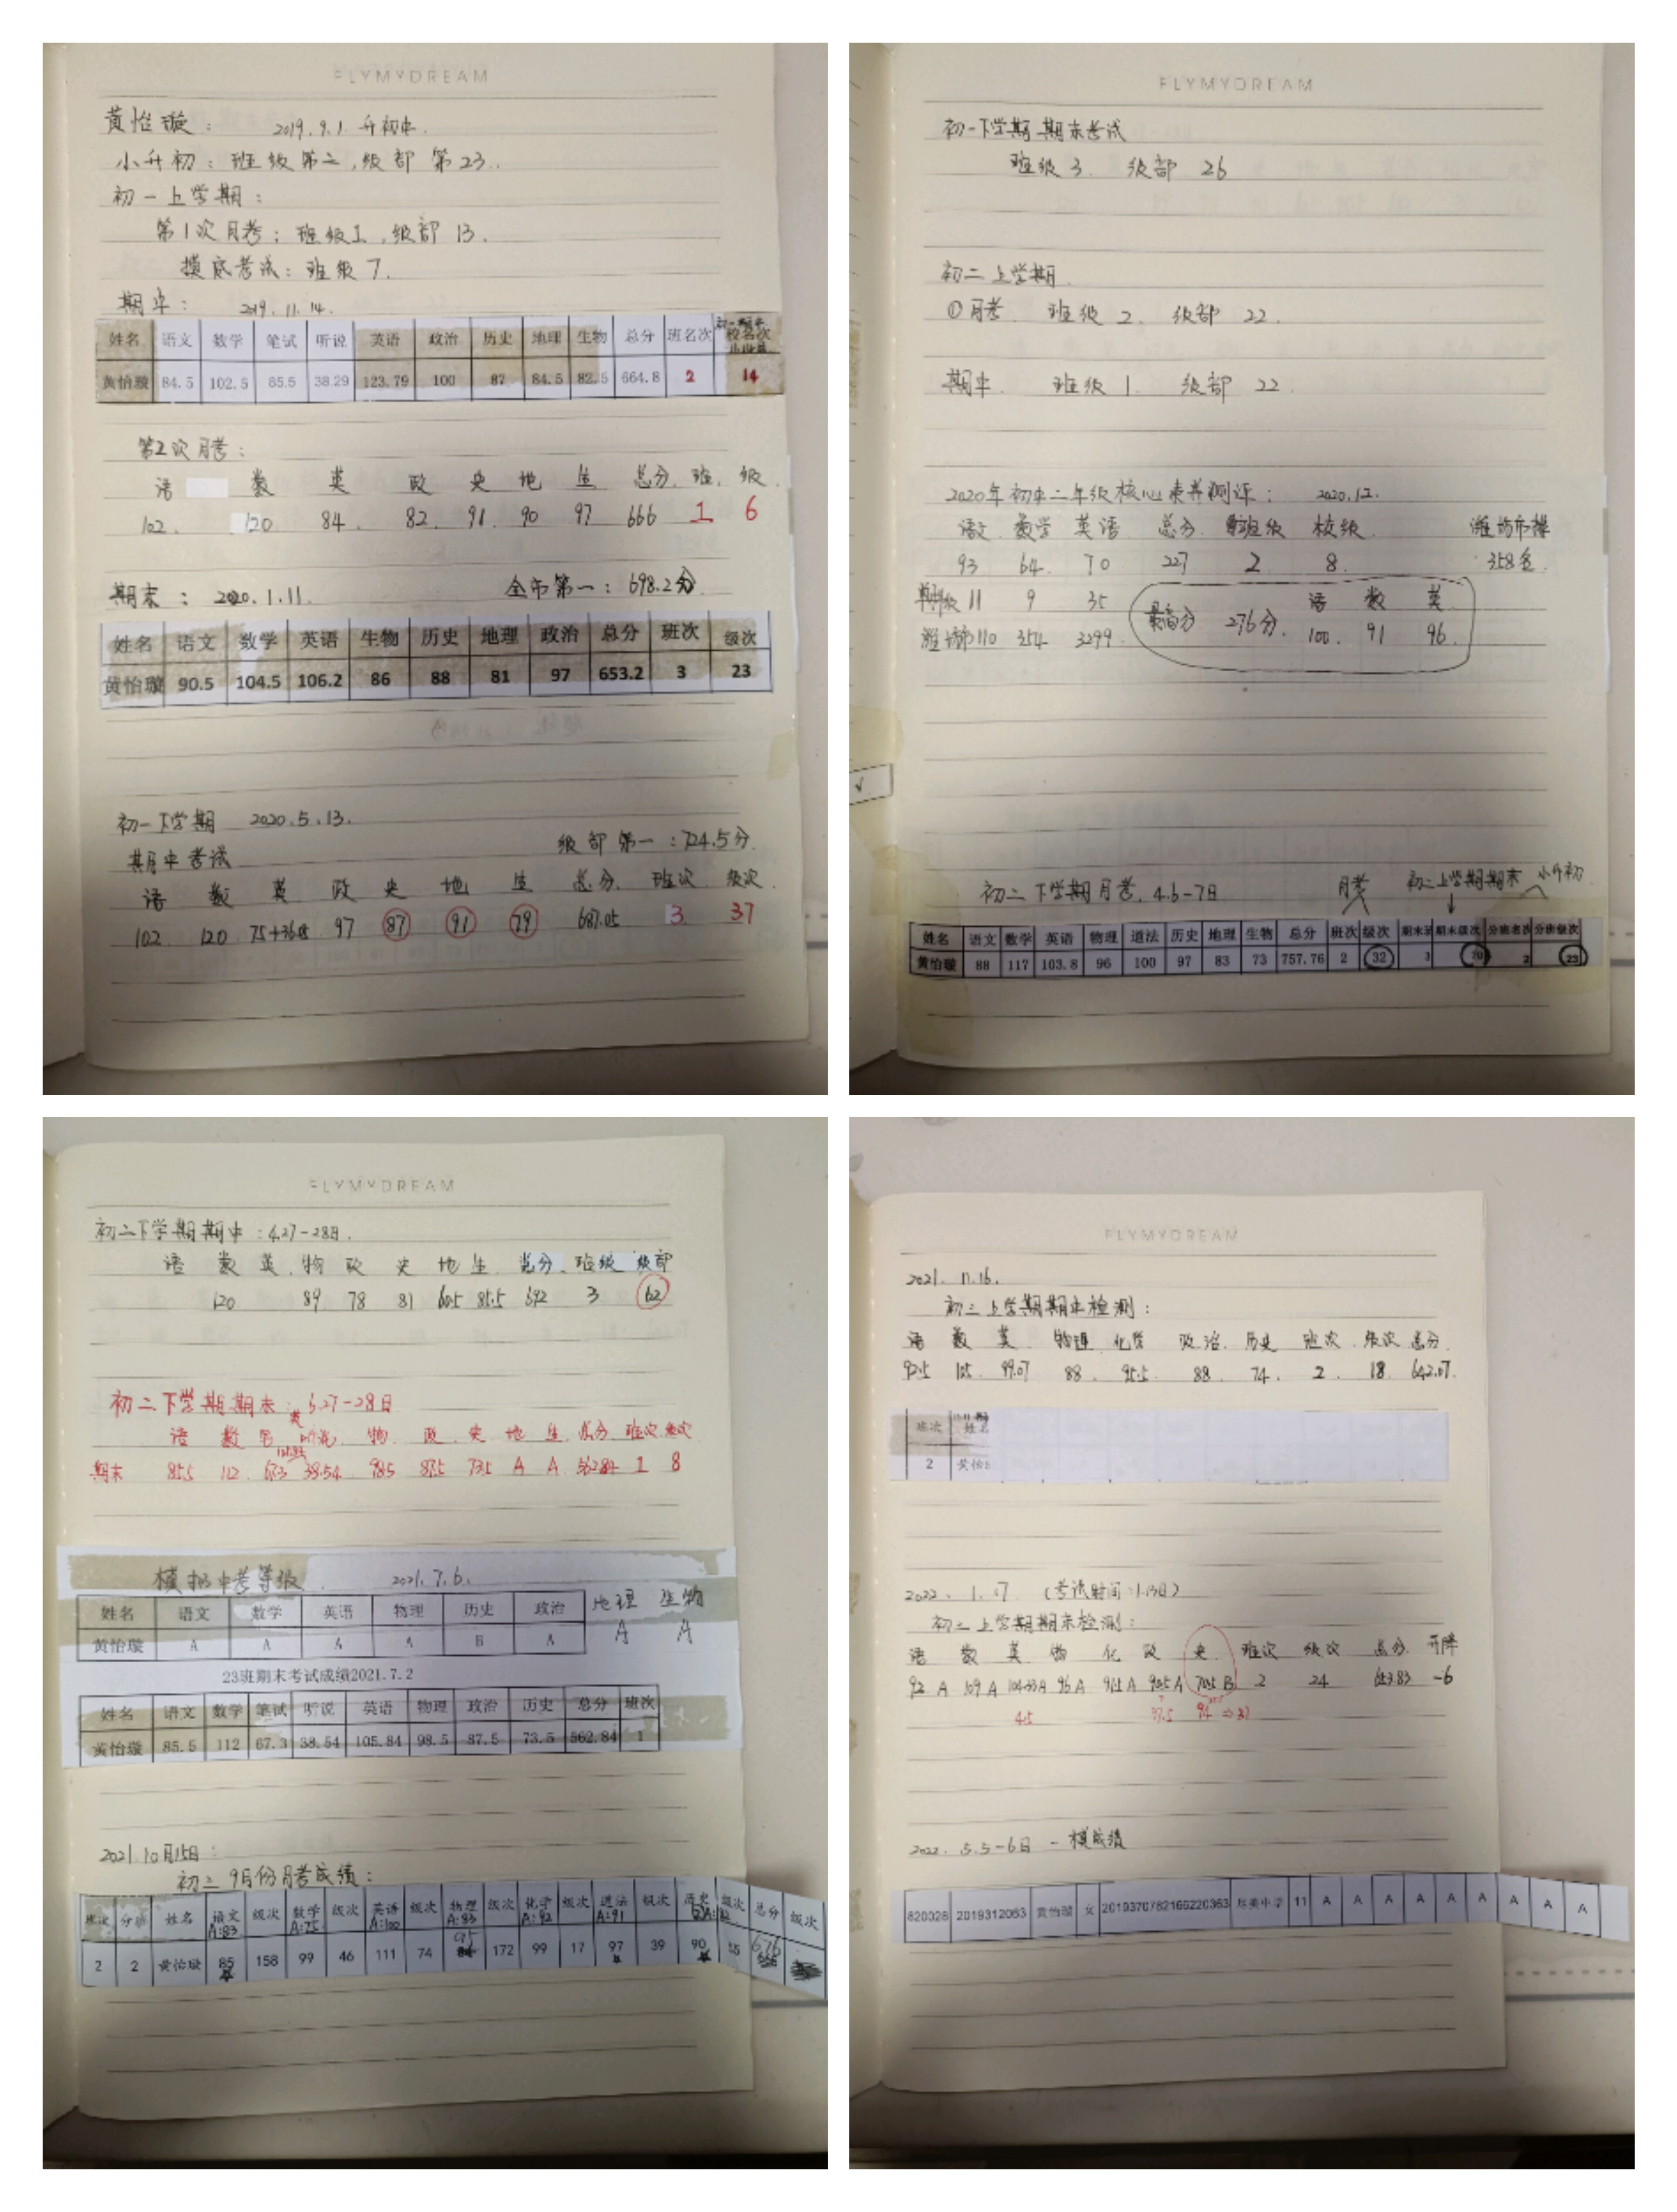 FLYMYDREAM
黄怡璇: 2019.9.1 升初中.
小升初: 班级第二, 级部 第23.
初一上学期:
第1次月考: 班级1, 级部 13.
摸底考试: 班级 7.
期中: 2019.11.14.
姓名 语文 数学 笔试 听说 英语 政治 历史 地理 生物 总分 班名次 校名次
黄怡璇 84.5 102.5 85.5 38.29 123.79 100 87 84.5 82.5 664.8 2 14
第2次月考:
语 数 英 政 史 地 生 总分. 班. 级.
102. 120 84. 82. 91. 90 97 666 1 6
期末: 2020.1.11. 全市第一: 698.2分
姓名 语文 数学 英语 生物 历史 地理 政治 总分 班次 级次
黄怡璇 90.5 104.5 106.2 86 88 81 97 653.2 3 23
初一下学期 2020.5.13.
级部第一: 724.5分
期中考试
语 数 英 政 史 地 生 总分. 班次. 级次.
102. 120 75+36.05 97 87 91 79 687.05 3 37
FLYMYDREAM
初一下学期 期末考试
班级 3. 级部 26
初二 上学期.
①月考 班级 2. 级部 22.
期中. 班级 1. 级部 22.
2020年初中二年级核心素养测评: 2020.12.
语文 数学 英语 总分 班级 校级. 潍坊市
93 64. 70 227 2 8. 358名.
11 9 35 最高分 276分. 语 数 英
潍坊市110 354 3299. 100. 91 96.
初二 下学期月考. 4.6-7日 月考 初二上学期期末 小升初
姓名 语文 数学 英语 物理 道法 历史 地理 生物 总分 班次 级次 期末班 期末级次 分班名次 分班级次
黄怡璇 88 117 103.8 96 100 97 83 73 757.76 2 32 3 70 2 23
FLYMYDREAM
初二下学期期中: 4.27-28日.
语 数 英. 物 政 史 地 生. 总分. 班级 级部
120 89 78 81 60.5 85.5 692 3 62
初二下学期期末: 6.27-28日
英
语 数 笔 听说. 物. 政. 史. 地 生. 总分. 班次 级次
期末 85.5 112 67.3 38.54 98.5 87.5 73.5 A A 562.84 1 8
模拟中考等级. 2021.7.6.
姓名 语文 数学 英语 物理 历史 政治 地理 生物
黄怡璇 A A A A B A A A
23班期末考试成绩2021.7.2
姓名 语文 数学 笔试 听说 英语 物理 政治 历史 总分 班次
黄怡璇 85.5 112 67.3 38.54 105.84 98.5 87.5 73.5 562.84 1
2021.10月15日:
初三 9月份月考成绩:
班次 分班 姓名 语文 级次 数学 级次 英语 级次 物理 级次 化学 级次 道法 级次 历史 级次 总分 级次
A:83 A:75 A:100 A:83 A:92 A:91
2 2 黄怡璇 85 158 99 46 111 74 95 172 99 17 97 39 90 676
FLYMYDREAM
2021. 11.16.
初三上学期期中检测:
语 数 英 物理 化学 政治. 历史 班次. 级次 总分.
92.5 105. 99.07 88. 95.5. 88. 74. 2. 18. 642.07.
班次 姓名
2 黄怡
2022. 1.17 (考试时间:1.13日)
初三上学期期末检测:
语 数 英 物 化 政 史 班次 级次 总分. 升降
92 A 109 A 104.33 A 96 A A 90.5 A 70.5 B 2 24 -6
2022. 5.5-6日 一模成绩
820028 2019312063 黄怡璇 女 2019370782166220363 尽美中学 11 A A A A A A A A A